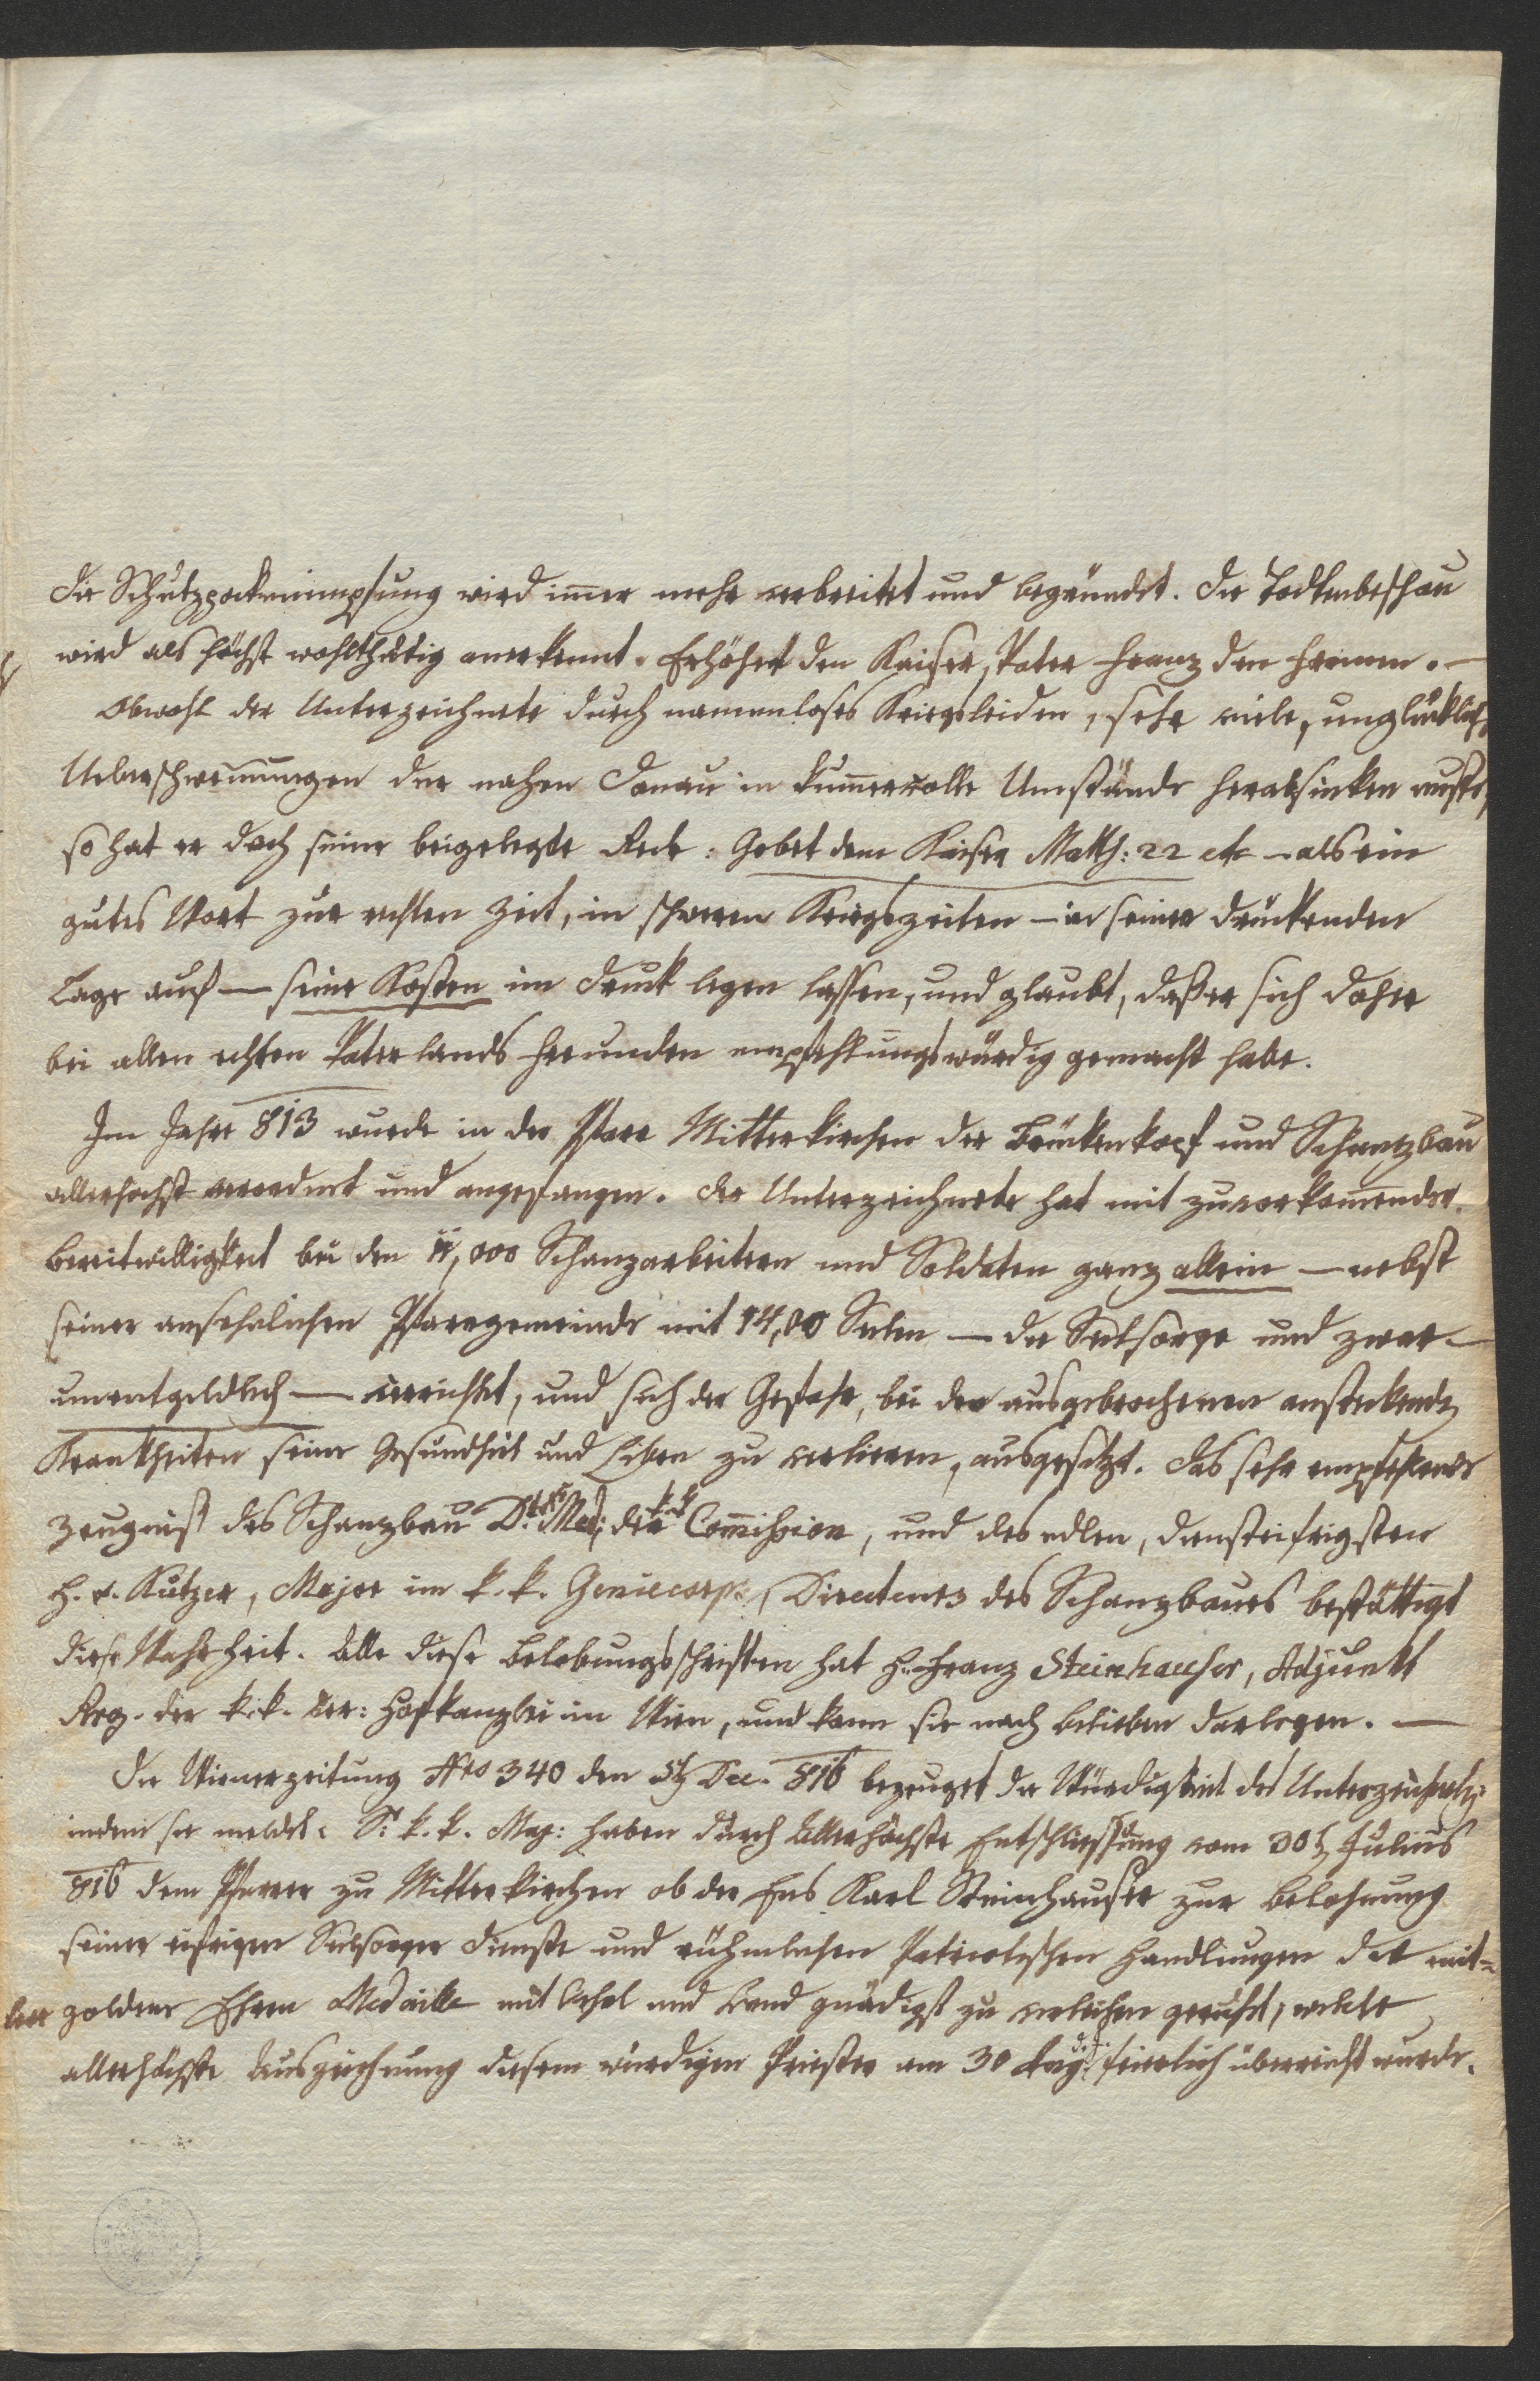 Die Schutzpockenimpfung wird im̄er mehr verbreitet und begründet. Die Todtenbeschau
wird als höchst wohlthätig anerkennt. Erhöhet den Kaiser, Vater Franz den From̄en. —
Obwohl der Unterzeichnete durch namenloses Kriegsleiden, sehr viele, unglücklich
Ueberschwem̄ungen der nahen Donau in kum̄ervolle Umstände herabsinken mußte,
so hat er doch seine beigelegte Rede: Gebet dem Kaiser Matth: 22 etc — als ein
gutes Wort zur rechten Zeit, in schweren Kriegszeiten — in seiner drückenden
Lage auf — seine Kosten in Druck legen lassen, und glaubt, daß er sich daher
bei allen echten Vaterlands Freunden empfehlungswürdig gemacht habe.
Im Jahre 813 wurde in der Pfarr Mitterkirchen der Brückenkopf und Schanzbau
allerhöchst verordnet und angefangen. Der Unterzeichnete hat mit zuvorkom̄ender
Bereitwilligkeit bei den 11,000 Schanzarbeitern und Soldaten ganz allein — nebst
seiner ansehnlichen Pfarrgemeinde mit 14,00 Seelen — die Seelsorge und zwar —
unentgeldlich — verrichtet, und sich der Gefahr, bei den ausgebrochenen ansteckenden
Krankheiten seine Gesundheit und Leben zu verlieren, ausgesetzt. Das sehr empfehlende
Zeugniß des Schanzbau Med: der k. k. Com̄ission, und des edlen, diensteifrigsten
H. v. Kutzer, Major im k. k. Geniecorps, Directeurs des Schanzbaues bestättigt
diese Wahrheit. Alle diese Belobungsschriften hat H. Franz Steinhauser, Adjunkt
Reg. der k. k. ver: Hofkanzlei in Wien, und kann sie nach Belieben darlegen. —
Die Wienerzeitung Nro 340 den 5t Dec. 816 bezeuget die Würdigkeit des Unterzeichneten,
indem sie meldet: Sr k. k. Maj: haben durch Allerhöchste Entschließung vom 30t Julius
816 dem Pfarrer zu Mitterkirchen ob der Ens Karl Steinhauser zur Belohnung
seiner eifrigen Seelsorger Dienste und rühmlichen Patriotischen Handlungen die mit=
lere goldene Ehren Medaille mit Oehrl und Band gnädigst zu verleihen geruht, welche
allerhöchste Auszeichnung diesem würdigen Priester am 30 feierlich überreicht wurde.